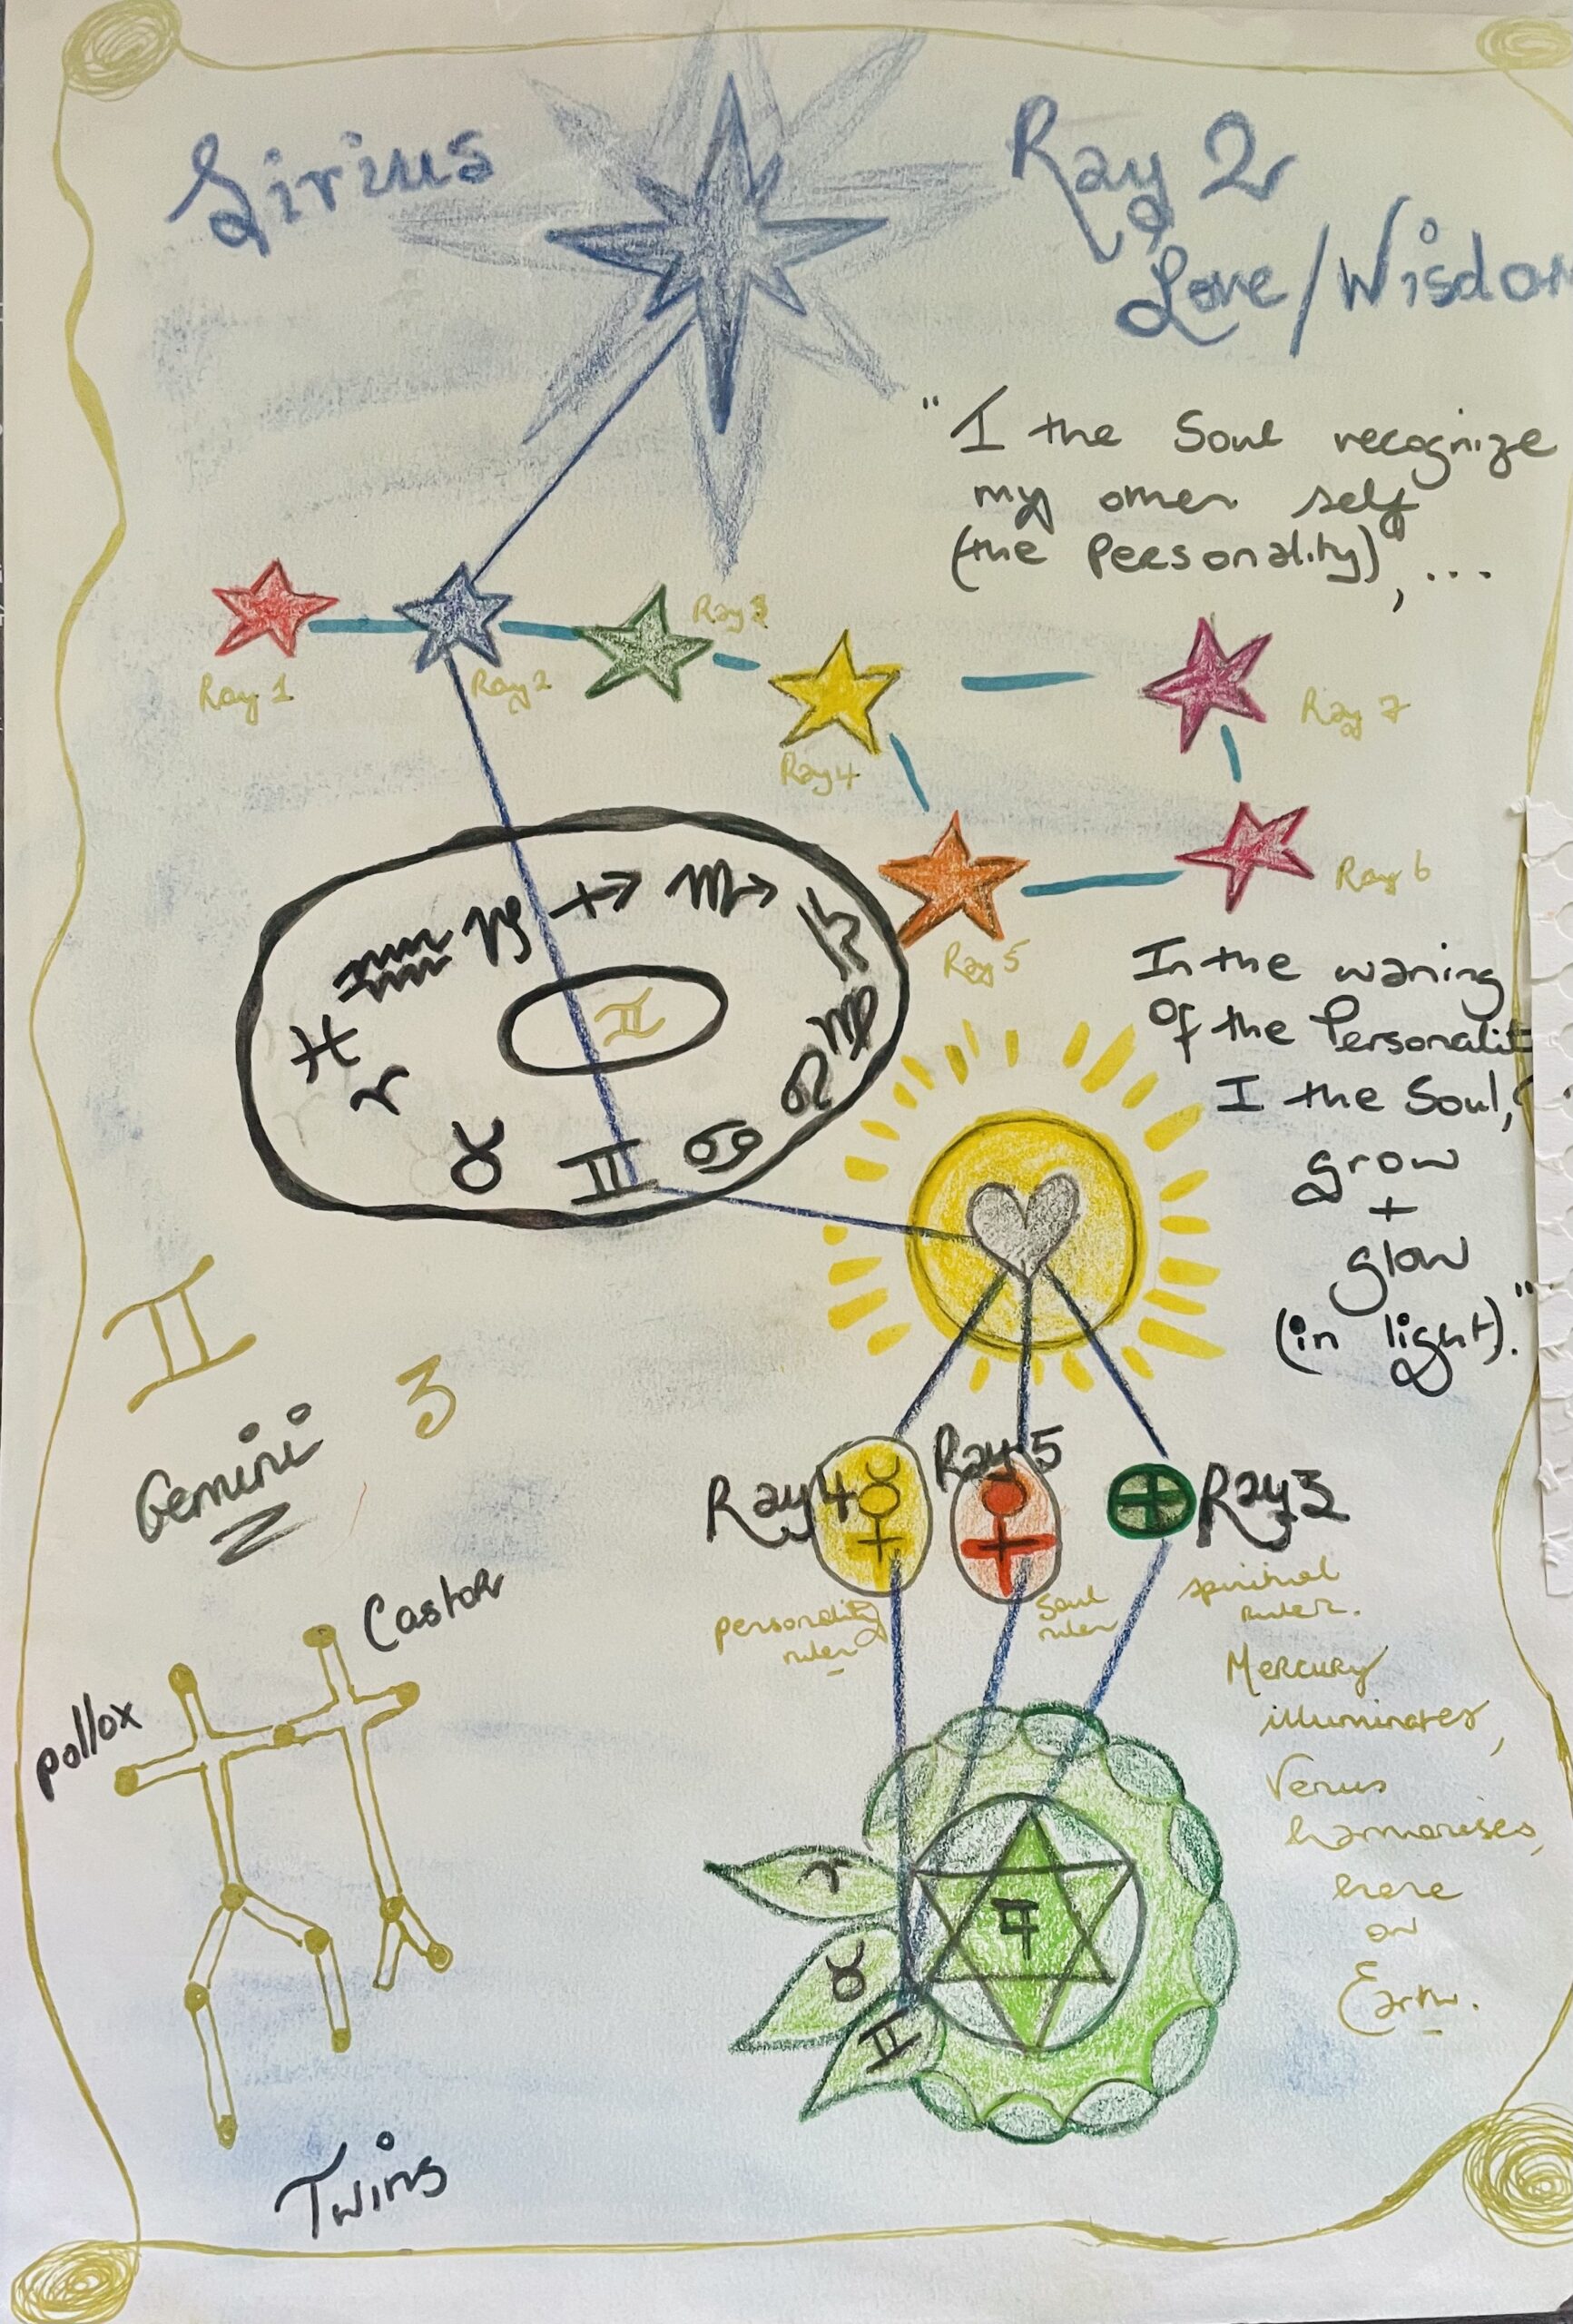 Sirius
Ray 2
Love/Wisdom
"I the Soul recognize
my other self
(the Personality), ...
Ray 1
Ray 2
Ray 3
Ray 4
Ray 7
Ray 6
Ray 5
♒ ♑ ♐ ♏ ♎
♓ ♈ ♉ ♊ ♋ ♌ ♍
♊
In the waning
of the Personalit
I the Soul,
grow
+
glow
(in light)."
♊
3
Gemini
Ray 4 ☿
Ray 5 ♀
⊕ Ray 3
personality
ruler
Soul
ruler
spiritual
ruler.
Castor
pollox
Mercury
illuminates,
Venus
harmonises,
here
on
Earth.
♈
♉
♊
Twins